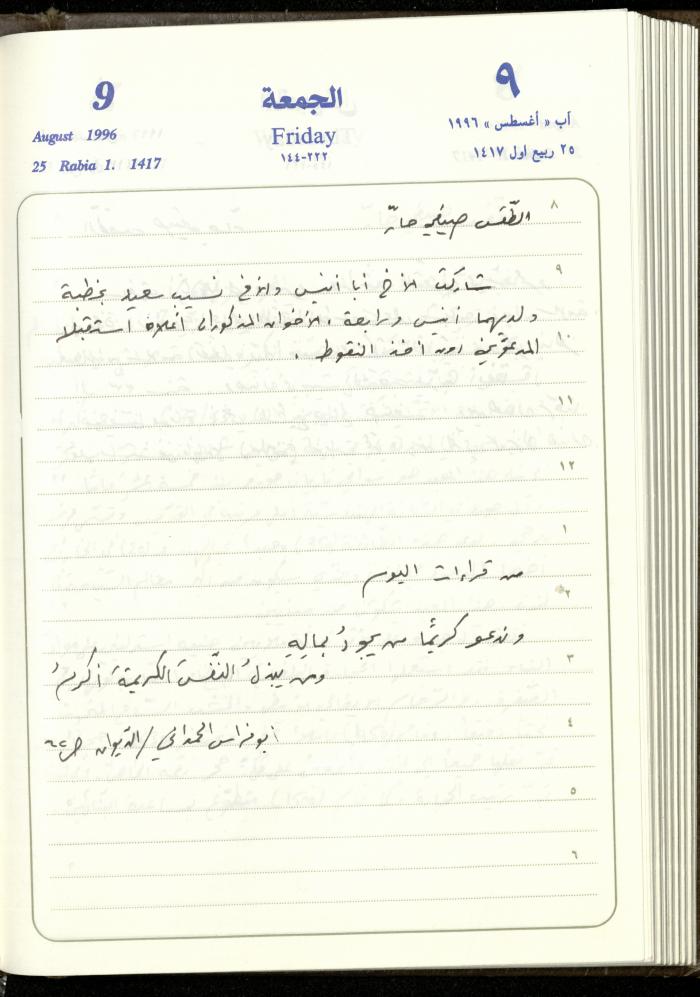 9
August 1996
25 Rabia 1. 1417
الجمعة
Friday
٢٢٢-١٤٤
٩
آب « أغسطس » ١٩٩٦
٢٥ ربيع اول ١٤١٧
٨
الطّقس صيفي حارّ
٩
شاركت الأخ أبا أنيس والأخ نسيب سعيد بخطبة
ولديهما أنيس ورابعة . الأخوان المذكوران أعلاه استقبلا
١٠
المدعوّين دون أخذ النقوط .
١١
١٢
١
من قراءات اليوم
٢
وندعو كريمًا من يجودُ بمالِهِ
٣
ومن يبذلُ النّفسَ الكريمةَ أكرمُ
٤
أبو فراس الحمداني / الدّيوان ص
٥
٦